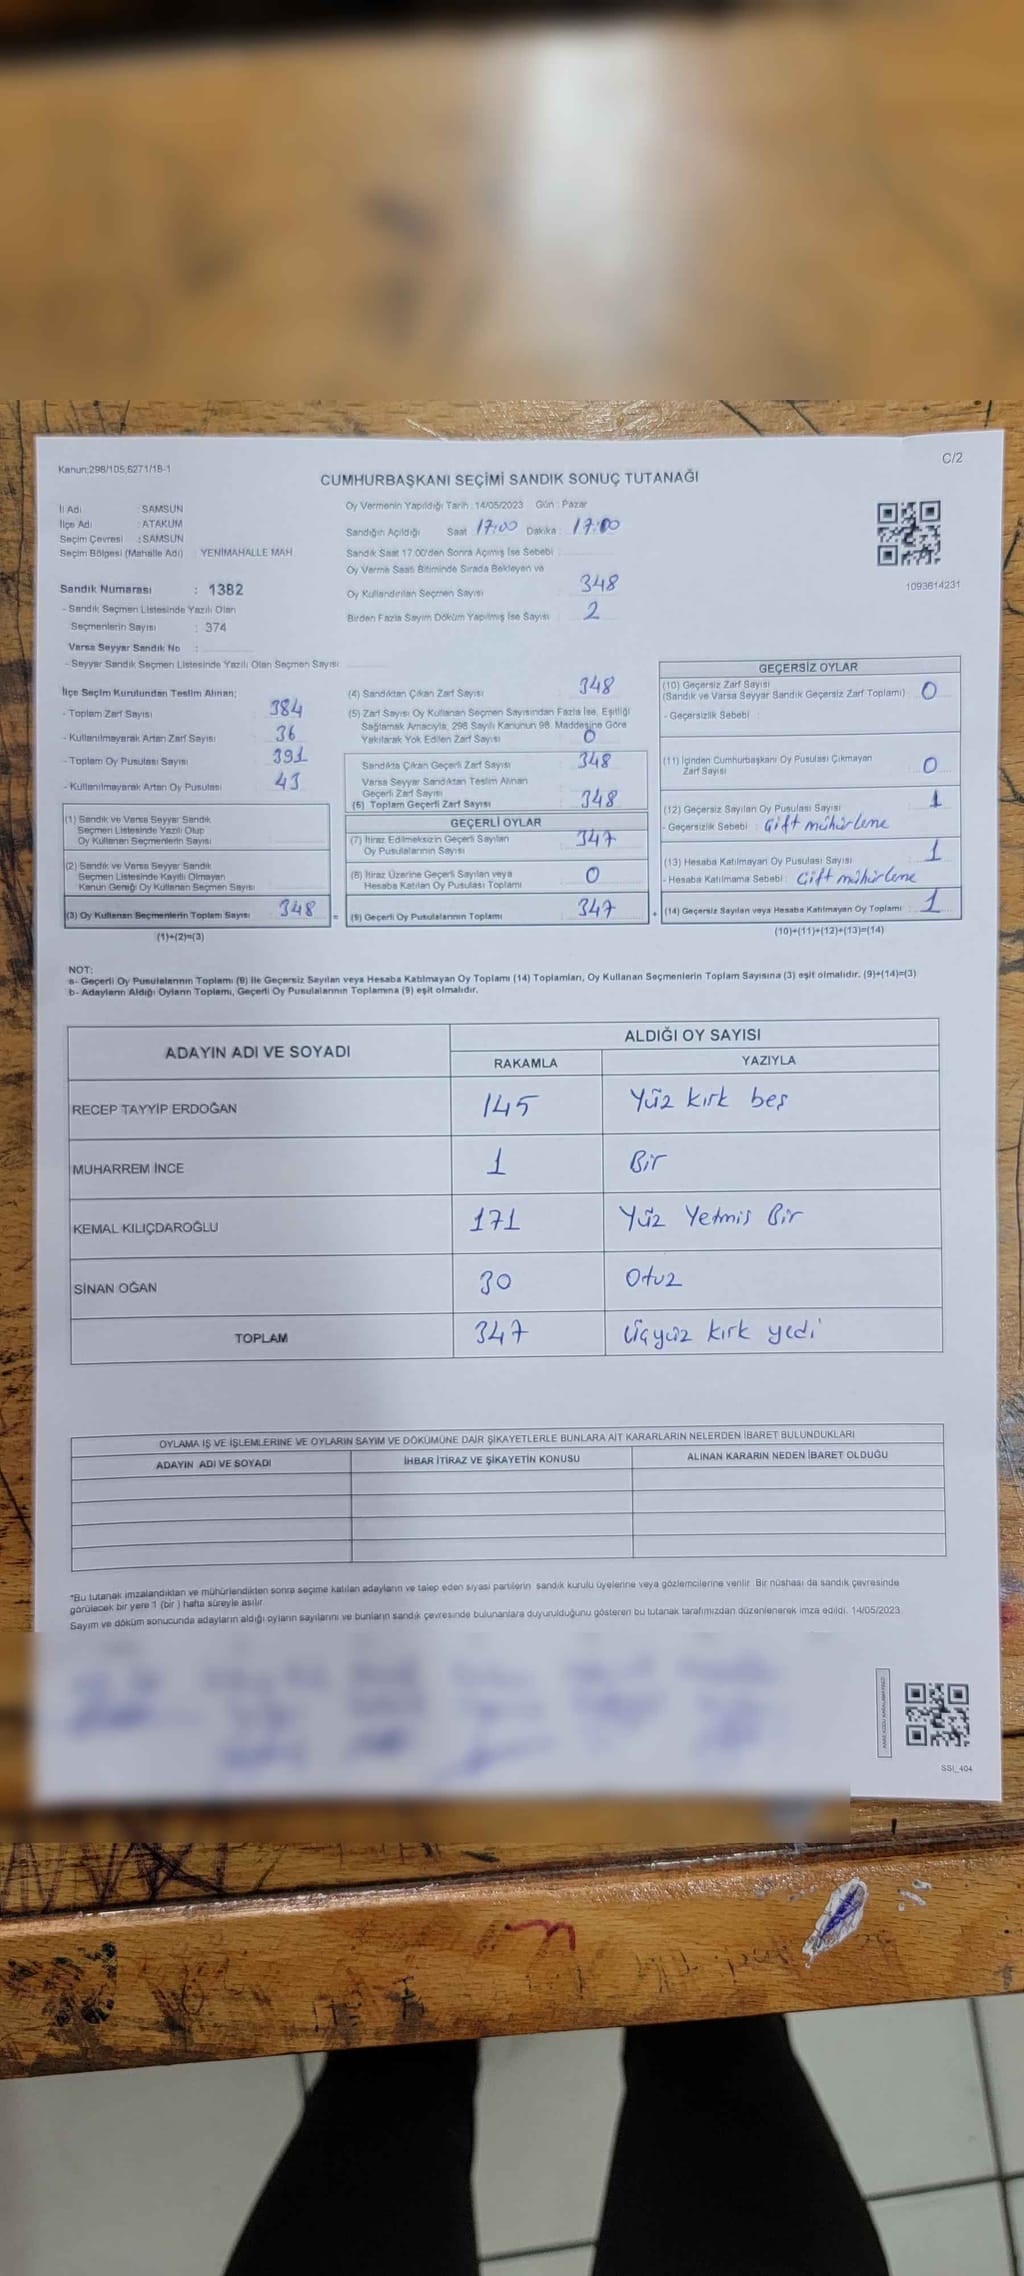 Kanun;298/105;6271/18-1
C/2
CUMHURBAŞKANI SEÇİMİ SANDIK SONUÇ TUTANAĞI
İl Adı : SAMSUN
İlçe Adı : ATAKUM
Seçim Çevresi : SAMSUN
Seçim Bölgesi (Mahalle Adı) : YENİMAHALLE MAH
Oy Vermenin Yapıldığı Tarih : 14/05/2023 Gün : Pazar
Sandığın Açıldığı Saat 17:00 Dakika : 17:00
Sandık Saat 17.00'den Sonra Açımış İse Sebebi :
Oy Verme Saati Bitiminde Sırada Bekleyen ve
Oy Kullandırılan Seçmen Sayısı : 348
Birden Fazla Sayım Döküm Yapılmış İse Sayısı : 2
1093614231
Sandık Numarası : 1382
- Sandık Seçmen Listesinde Yazılı Olan
Seçmenlerin Sayısı : 374
Varsa Seyyar Sandık No :
- Seyyar Sandık Seçmen Listesinde Yazılı Olan Seçmen Sayısı
İlçe Seçim Kurulundan Teslim Alınan;
- Toplam Zarf Sayısı : 384
- Kullanılmayarak Artan Zarf Sayısı : 36
- Toplam Oy Pusulası Sayısı : 391
- Kullanılmayarak Artan Oy Pusulası : 43
(1) Sandık ve Varsa Seyyar Sandık
Seçmen Listesinde Yazılı Olup
Oy Kullanan Seçmenlerin Sayısı
(2) Sandık ve Varsa Seyyar Sandık
Seçmen Listesinde Kayıtlı Olmayan
Kanun Gereği Oy Kullanan Seçmen Sayısı
(3) Oy Kullanan Seçmenlerin Toplam Sayısı : 348 =
(1)+(2)=(3)
(4) Sandıktan Çıkan Zarf Sayısı : 348
(5) Zarf Sayısı Oy Kullanan Seçmen Sayısından Fazla İse, Eşitliği
Sağlamak Amacıyla, 298 Sayılı Kanunun 98. Maddesine Göre
Yakılarak Yok Edilen Zarf Sayısı : 0
Sandıkta Çıkan Geçerli Zarf Sayısı : 348
Varsa Seyyar Sandıktan Teslim Alınan
Geçerli Zarf Sayısı
(6) Toplam Geçerli Zarf Sayısı : 348
GEÇERLİ OYLAR
(7) İtiraz Edilmeksizin Geçerli Sayılan
Oy Pusulalarının Sayısı : 347
(8) İtiraz Üzerine Geçerli Sayılan veya
Hesaba Katılan Oy Pusulası Toplamı : 0
(9) Geçerli Oy Pusulalarının Toplamı : 347 +
GEÇERSİZ OYLAR
(10) Geçersiz Zarf Sayısı
(Sandık ve Varsa Seyyar Sandık Geçersiz Zarf Toplamı) : 0
- Geçersizlik Sebebi :
(11) İçinden Cumhurbaşkanı Oy Pusulası Çıkmayan
Zarf Sayısı : 0
(12) Geçersiz Sayılan Oy Pusulası Sayısı : 1
- Geçersizlik Sebebi : Çift mühürleme
(13) Hesaba Katılmayan Oy Pusulası Sayısı : 1
- Hesaba Katılmama Sebebi : Çift mühürleme
(14) Geçersiz Sayılan veya Hesaba Katılmayan Oy Toplamı : 1
(10)+(11)+(12)+(13)=(14)
NOT:
a- Geçerli Oy Pusulalarının Toplamı (9) ile Geçersiz Sayılan veya Hesaba Katılmayan Oy Toplamı (14) Toplamları, Oy Kullanan Seçmenlerin Toplam Sayısına (3) eşit olmalıdır. (9)+(14)=(3)
b- Adayların Aldığı Oyların Toplamı, Geçerli Oy Pusulalarının Toplamına (9) eşit olmalıdır.
ADAYIN ADI VE SOYADI
ALDIĞI OY SAYISI
RAKAMLA YAZIYLA
RECEP TAYYİP ERDOĞAN 145 Yüz kırk beş
MUHARREM İNCE 1 Bir
KEMAL KILIÇDAROĞLU 171 Yüz Yetmiş Bir
SİNAN OĞAN 30 Otuz
TOPLAM 347 Üçyüz kırk yedi
OYLAMA İŞ VE İŞLEMLERİNE VE OYLARIN SAYIM VE DÖKÜMÜNE DAİR ŞİKAYETLERLE BUNLARA AİT KARARLARIN NELERDEN İBARET BULUNDUKLARI
ADAYIN ADI VE SOYADI İHBAR İTİRAZ VE ŞİKAYETİN KONUSU ALINAN KARARIN NEDEN İBARET OLDUĞU
*Bu tutanak imzalandıktan ve mühürlendikten sonra seçime katılan adayların ve talep eden siyasi partilerin sandık kurulu üyelerine veya gözlemcilerine verilir. Bir nüshası da sandık çevresinde
görülecek bir yere 1 (bir ) hafta süreyle asılır.
Sayım ve döküm sonucunda adayların aldığı oyların sayılarını ve bunların sandık çevresinde bulunanlara duyurulduğunu gösteren bu tutanak tarafımızdan düzenlenerek imza edildi. 14/05/2023
SSI_404